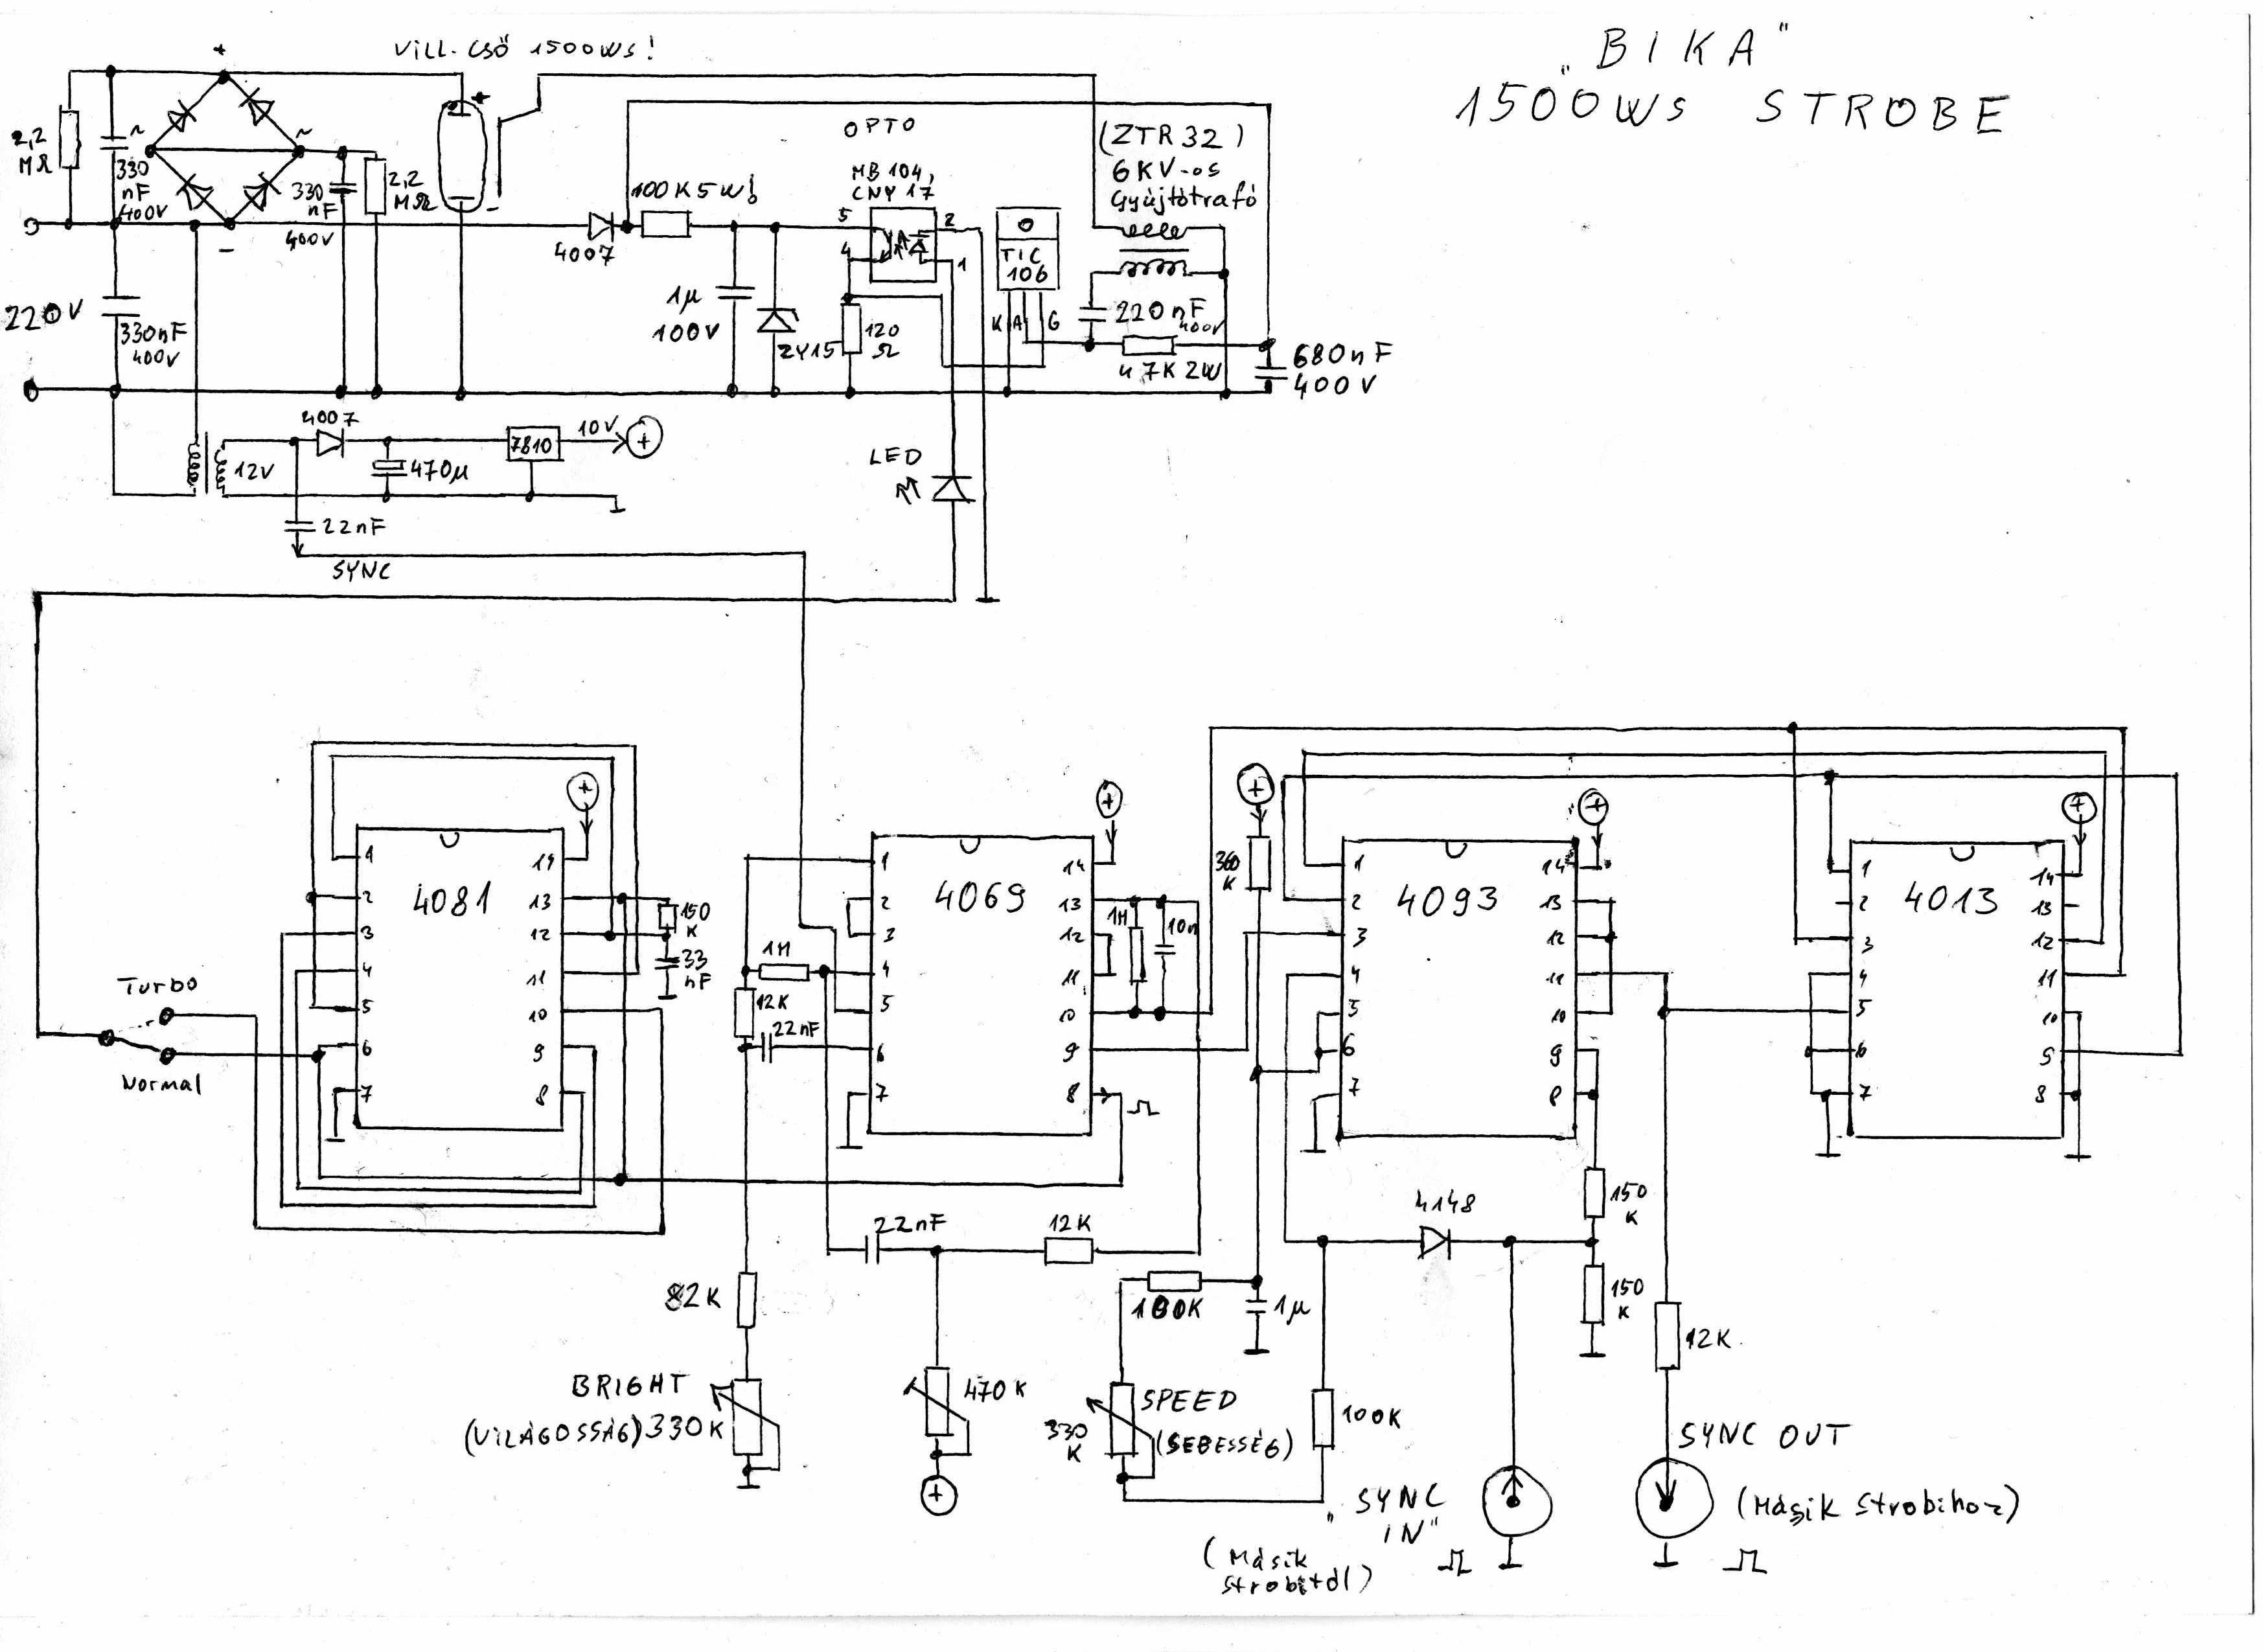 „BIKA"
1500WS STROBE
Vill. CSŐ 1500WS!
+
+
~
~
-
-
2,2
MΩ
330
nF
400V
330
nF
400V
2,2
MΩ
220V
330nF
400V
4007
100K 5W!
1µ
100V
ZY15
OPTO
MB104,
CNY17
5
4
2
1
120
Ω
TIC
106
K A G
(ZTR32)
6KV-os
Gyújtótrafó
220nF
400V
47K 2W
680nF
400V
12V
4007
470µ
7810
10V
+
22nF
SYNC
LED
Turbo
Normal
4081
1
2
3
4
5
6
7
14
13
12
11
10
9
8
+
150
K
33
nF
4069
1
2
3
4
5
6
7
14
13
12
11
10
9
8
+
1M
12K
22nF
1M
10n
82K
BRIGHT
(VILÁGOSSÁG) 330K
22nF
12K
470K
+
+
360
K
4093
1
2
3
4
5
6
7
14
13
12
11
10
9
8
+
4013
1
2
3
4
5
6
7
14
13
12
11
10
9
8
+
100K
1µ
330
K
SPEED
(SEBESSÉG)
100K
4148
150
K
150
K
12K
„SYNC
IN"
(Másik
strobitól)
SYNC OUT
(Másik strobihoz)